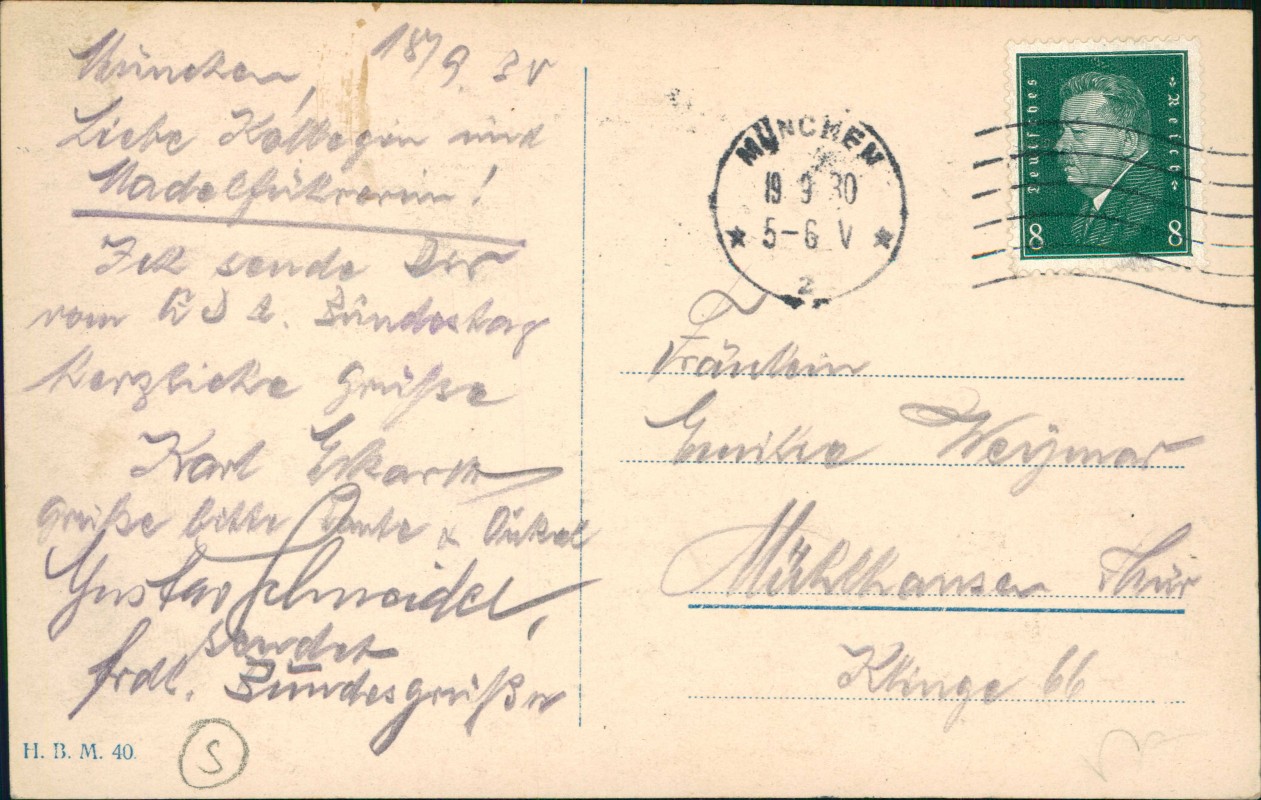 München, 18/9. 30
Liebe Kollegin und
Madelführerin!
Ich sende Dir
vom G D A. Bundestag
herzliche Grüße
Karl
Grüße bitte Tante & Onkel
Gustav Schneidel,
sendet
frdl. Bundesgrüße
H. B. M. 40.
S
MÜNCHEN
19 9 30
5-6 V
2
Deutsches Reich
8 8
Fräulein
Emilie Weymar
Mühlhausen Thür
Klinge 66